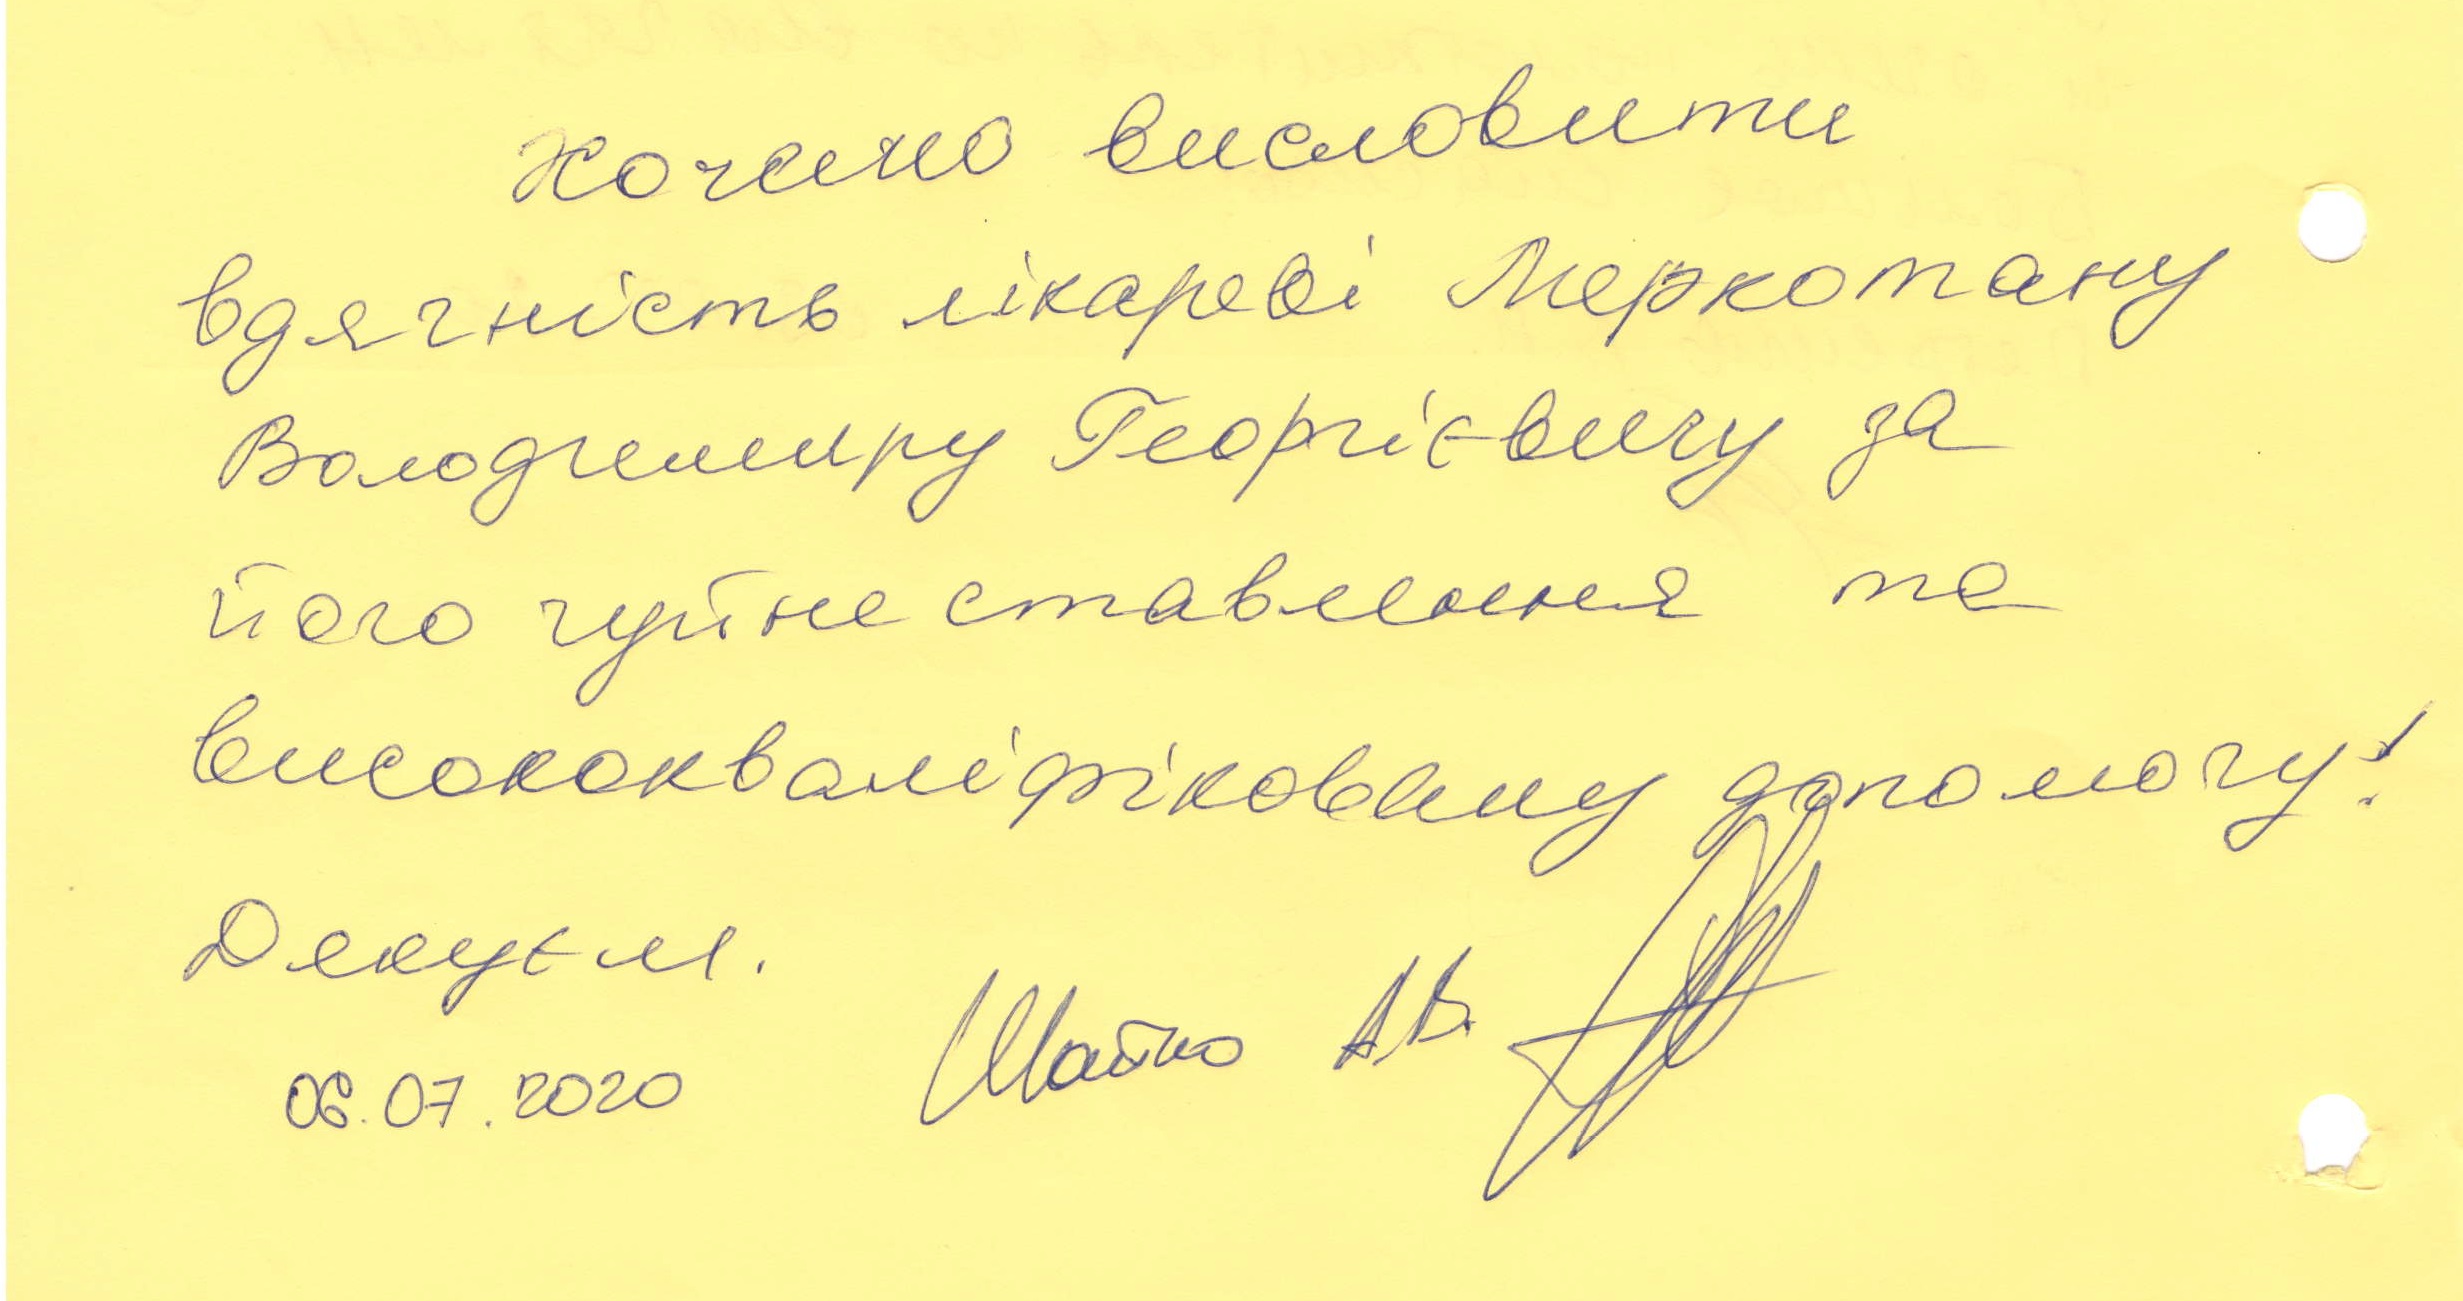 Хочемо висловити
вдячність лікареві Меркотану
Володимиру Георгієвичу за
його чуйне ставлення та
висококваліфіковану допомогу!
Дякуєм.
06.07.2020 Шайко А.В.